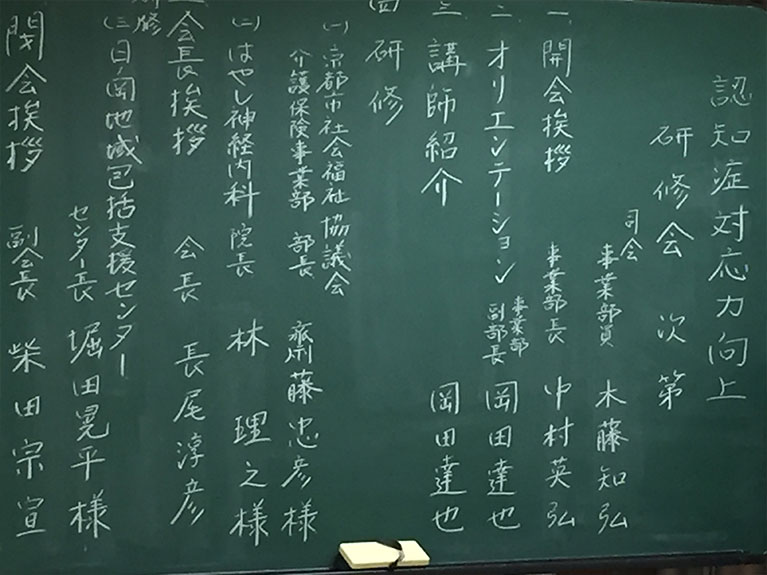 認知症対応力向上
研修会 次第
司会
事業部員 木藤知弘
一 開会挨拶 事業部長 中村英弘
二 オリエンテーション 事業部副部長 岡田達也
三 講師紹介 岡田達也
四 研修
(一) 京都市社会福祉協議会
介護保険事業部 部長 齋藤忠彦様
(二) はやし神経内科 院長 林 理之様
会長挨拶 会長 長尾淳彦
研修
(三) 日ノ岡地域包括支援センター
センター長 堀田晃平様
閉会挨拶 副会長 柴田宗宣